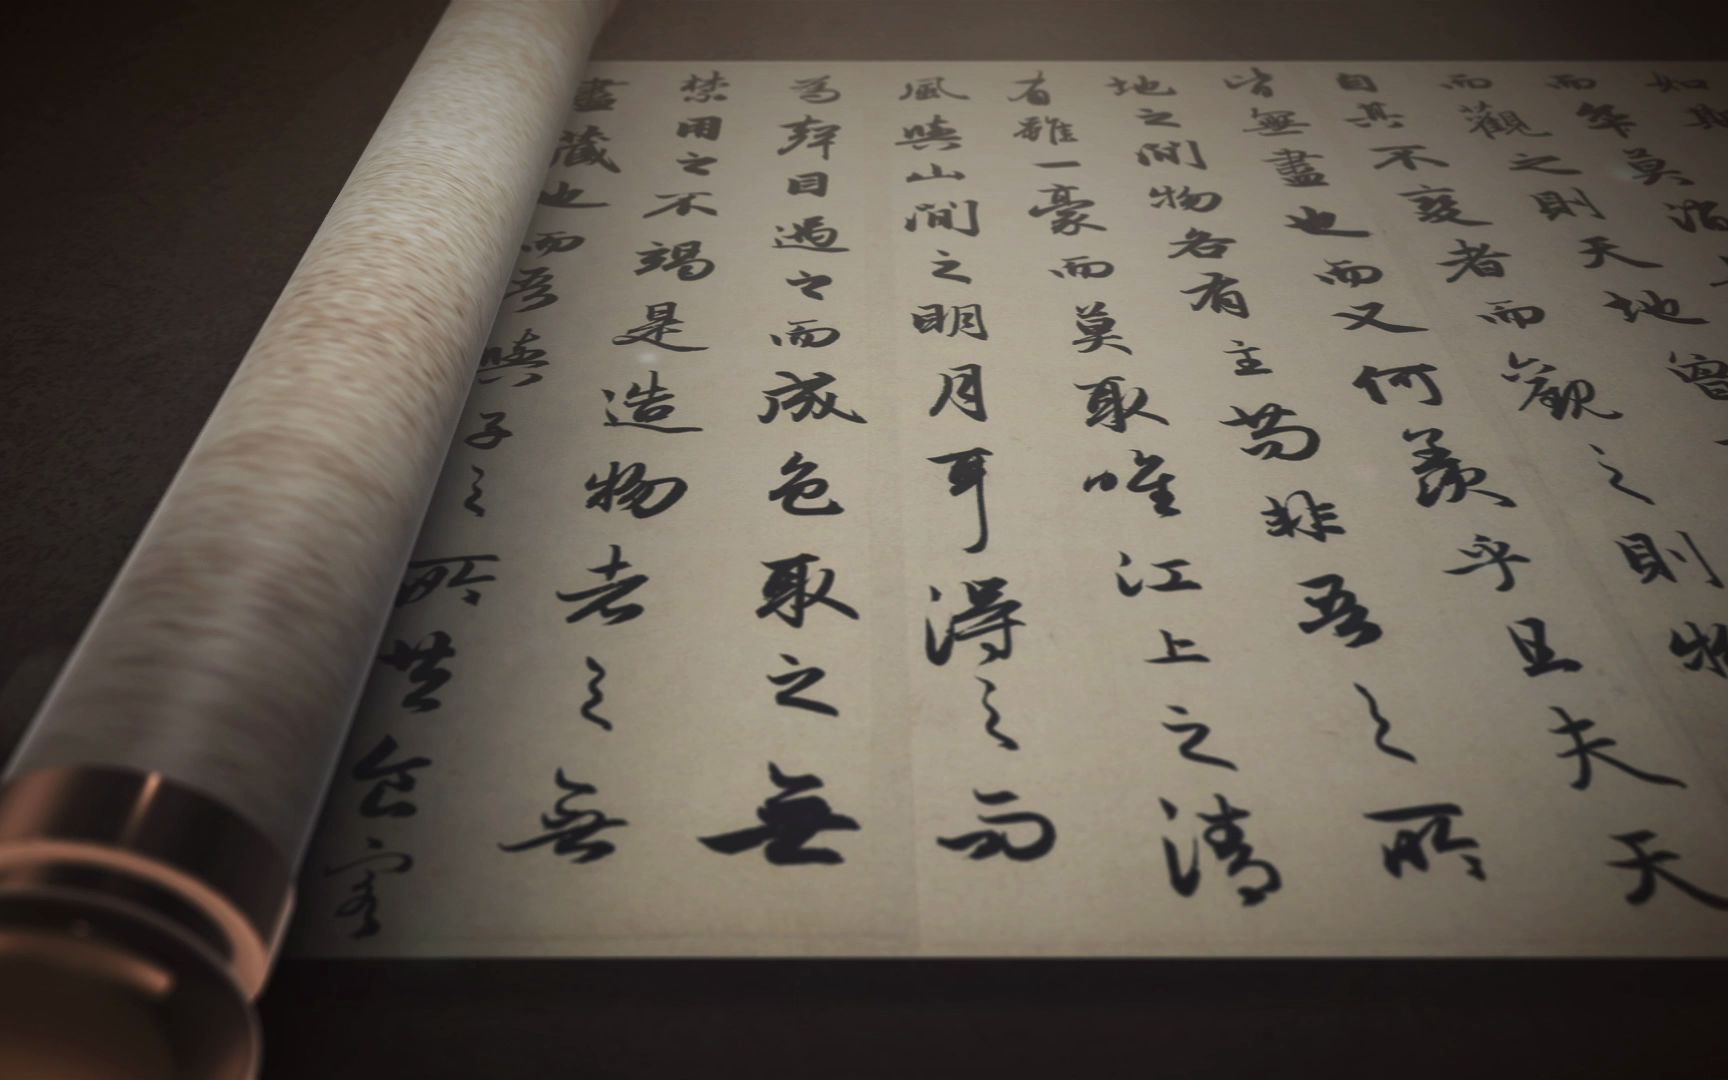 如
而卒莫消
而觀之則天地曾
自其不變者而觀之則物
皆無盡也而又何羨乎且夫天
地之間物各有主苟非吾之所
有雖一豪而莫取唯江上之清
風與山間之明月耳得之而
為聲目遇之而成色取之無
禁用之不竭是造物者之無
盡藏也而吾與子之所共食客